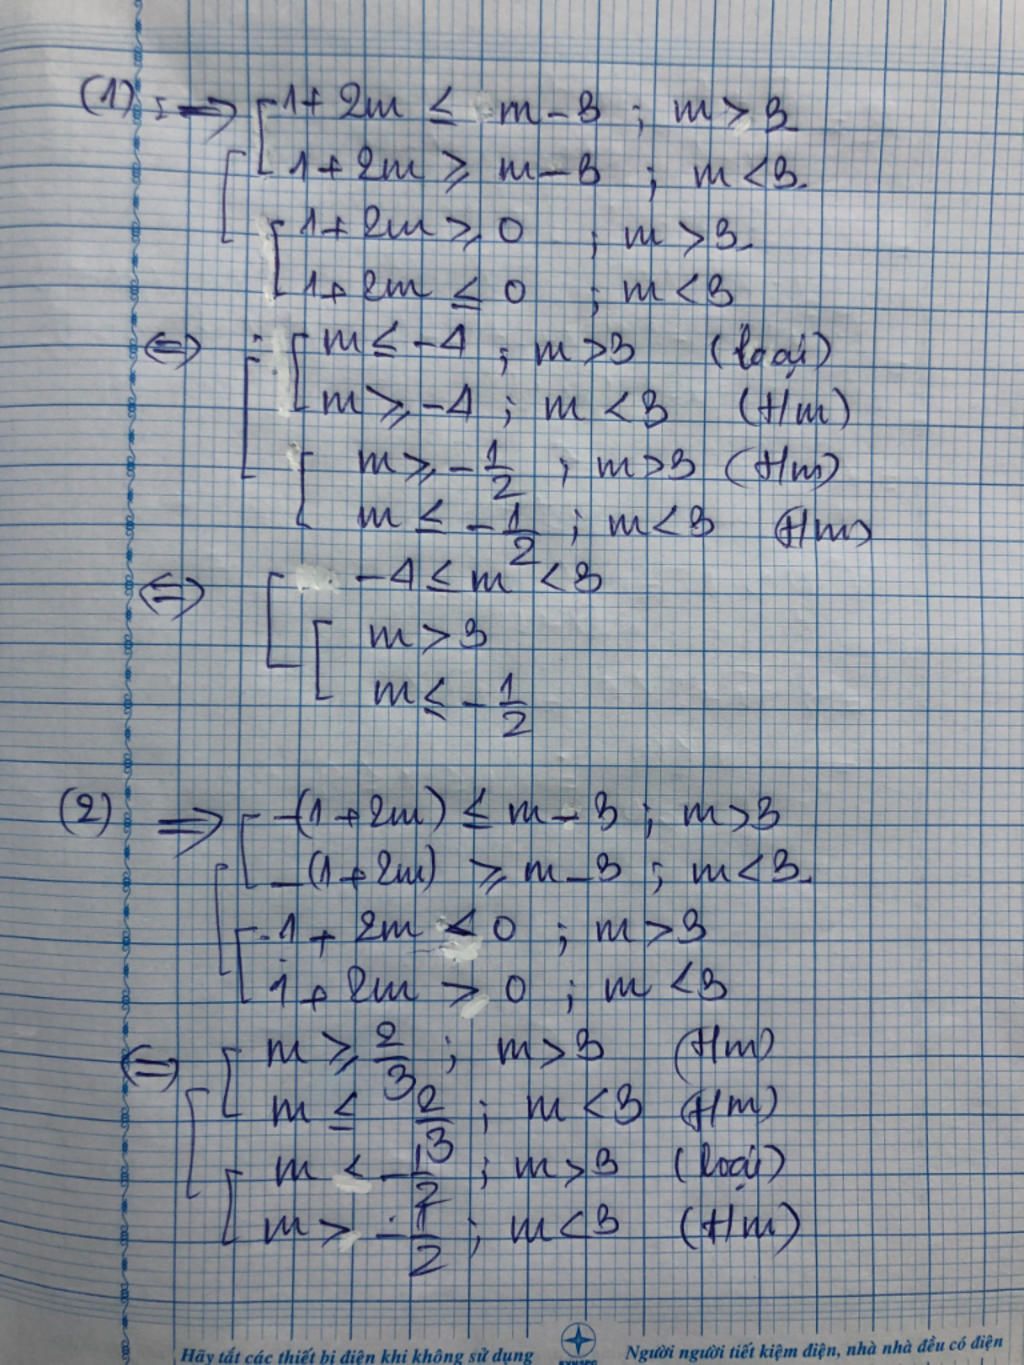 (1) : ⇒ [ 1 + 2m ≤ m - 3 ; m > 3
1 + 2m ≥ m - 3 ; m < 3.
1 + 2m ≥ 0 ; m > 3.
1 + 2m ≤ 0 ; m < 3
⇔ [ m ≤ -4 ; m > 3 (loại)
m ≥ -4 ; m < 3 (t/m)
m ≥ -1/2 ; m > 3 (t/m)
m ≤ -1/2 ; m < 3 (t/m)
⇔ [ -4 ≤ m < 3
m > 3
m ≤ -1/2
(2) ⇒ [ -(1 + 2m) ≤ m - 3 ; m > 3
-(1 + 2m) ≥ m - 3 ; m < 3.
1 + 2m < 0 ; m > 3
1 + 2m > 0 ; m < 3
⇔ [ m ≥ 2/3 ; m > 3 (t/m)
m ≤ 2/3 ; m < 3 (t/m)
m < -1/2 ; m > 3 (loại)
m > -1/2 ; m < 3 (t/m)
Hãy tắt các thiết bị điện khi không sử dụng
Người người tiết kiệm điện, nhà nhà đều có điện